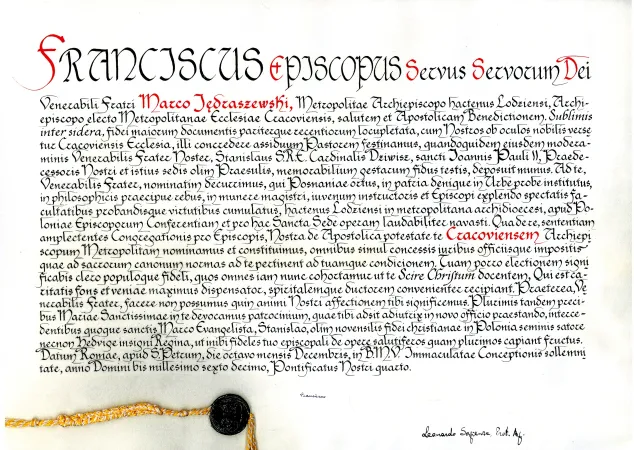 FRANCISCUS EPISCOPUS Servus Servorum Dei
Venerabili Fratri Marco Jędraszewski, Metropolitae Archiepiscopo hactenus Lodziensi, Archi-
episcopo electo Metropolitanae Ecclesiae Cracoviensis, salutem et Apostolicam Benedictionem. Sublimis
inter sidera, fidei maiorum documentis pariterque recentiorum locupletata, cum Nostros ob oculos nobilis verse
tur Cracoviensis Ecclesia, illi concredere assiduum Pastorem festinamus, quandoquidem eiusdem modera-
minis Venerabilis Frater Noster, Stanislaus S.R.E. Cardinalis Dziwisz, sancti Ioannis Pauli II, Praede-
cessoris Nostri et istius sedis olim Praesulis, memorabilium gestacum fidus testis, deposuit munus. Ad te,
Venerabilis Frater, nominatim decurrimus, qui Posnaniae ortus, in patria denique in Urbe probe institutus,
in philosophicis praecipue rebus, in munere magistri, iuvenum instructoris et Episcopi explendo spectatis fa-
cultatibus probandisque virtutibus cumulatus, hactenus Lodziensi in metropolitana archidioecesi, apud Po-
loniae Episcoporum Conferentiam et pro hac Sancta Sede operam laudabiliter navasti. Quadere, sententiam
amplectentes Congregationis pro Episcopis, Nostra de Apostolica potestate te Cracoviensem Archiepi
scopum Metropolitam nominamus et constituimus, omnibus simul concessis iuribus officiisque impositis
quae ad sacrorum canonum normas ad te pertinent ad tuamque condicionem. Tuam porro electionem signi
ficabis clero populoque fideli, quos omnes iam nunc cohortamur ut te Scire Christum docentem, Qui est ca-
ritatis fons et veniae maximus dispensator, spiritalemque ductorem convenienter recipiant. Praeterea, Ve-
nerabilis Frater, facere non possumus quin animi Nostri affectionem tibi significemus. Plurimis tandem preci-
bus Mariae Sanctissimae in te devocamus patrocinium, quae tibi adsit adiutrix in novo officio praestando, interce-
dentibus quoque sanctis Marco Evangelista, Stanislao, olim novensilis fidei christianae in Polonia seminis satore
necnon Hedvige insigni Regina, ut inibi fideles tuo episcopali de opere salutiferos quam plurimos capiant fructus.
Datum Romae, apud S. Petrum, die octavo mensis Decembris, in B.M.V. Immaculatae Conceptionis sollemni
tate, anno Domini bis millesimo sexto decimo, Pontificatus Nostri quarto.
Franciscus
Leonardo Sapienza, Prot. Ap.